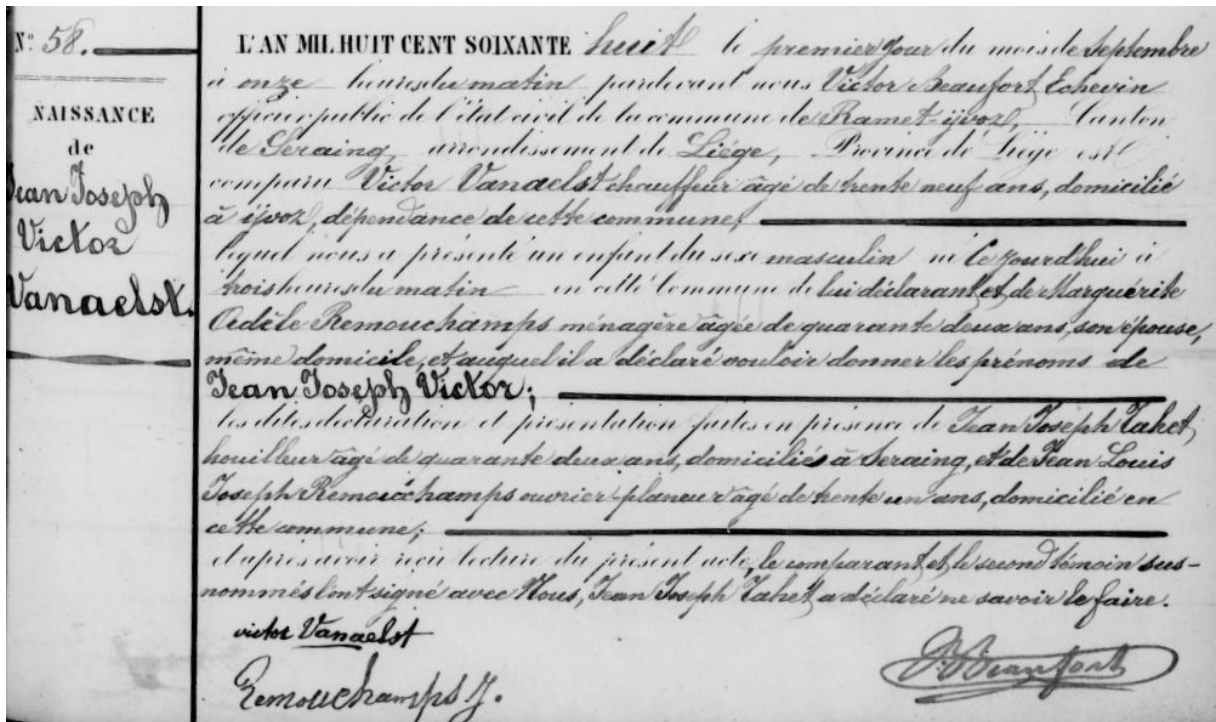 N° 58.
NAISSANCE
de
Jean Joseph
Victor
Vanaelst.
L'AN MIL HUIT CENT SOIXANTE huit le premier jour du mois de Septembre
à onze heures du matin pardevant nous Victor Beaufort Echevin
officier public de l'état civil de la commune de Ramet-ijvoz, Canton
de Seraing, arrondissement de Liége, Province de Liége est
comparu Victor Vanaelst chauffeur âgé de trente neuf ans, domicilié
à ijvoz, dépendance de cette commune;
lequel nous a présenté un enfant du sexe masculin né ce jourd'hui à
trois heures du matin en cette Commune de lui déclarant et de Marguérite
Adèle Remouchamps ménagère âgée de quarante deux ans, son épouse,
même domicile, et auquel il a déclaré vouloir donner les prénoms de
Jean Joseph Victor;
les dites déclaration et présentation faites en présence de Jean Joseph Tahet,
houilleur âgé de quarante deux ans, domiciliés à Seraing, et de Jean Louis
Joseph Remouchamps ouvrier-planeur âgé de trente un ans, domicilié en
cette commune;
et après avoir reçu lecture du présent acte, le comparant et le second témoin sus-
nommés l'ont signé avec Nous, Jean Joseph Tahet, a déclaré ne savoir le faire.
victor Vanaelst
Remouchamps J.
V. Beaufort